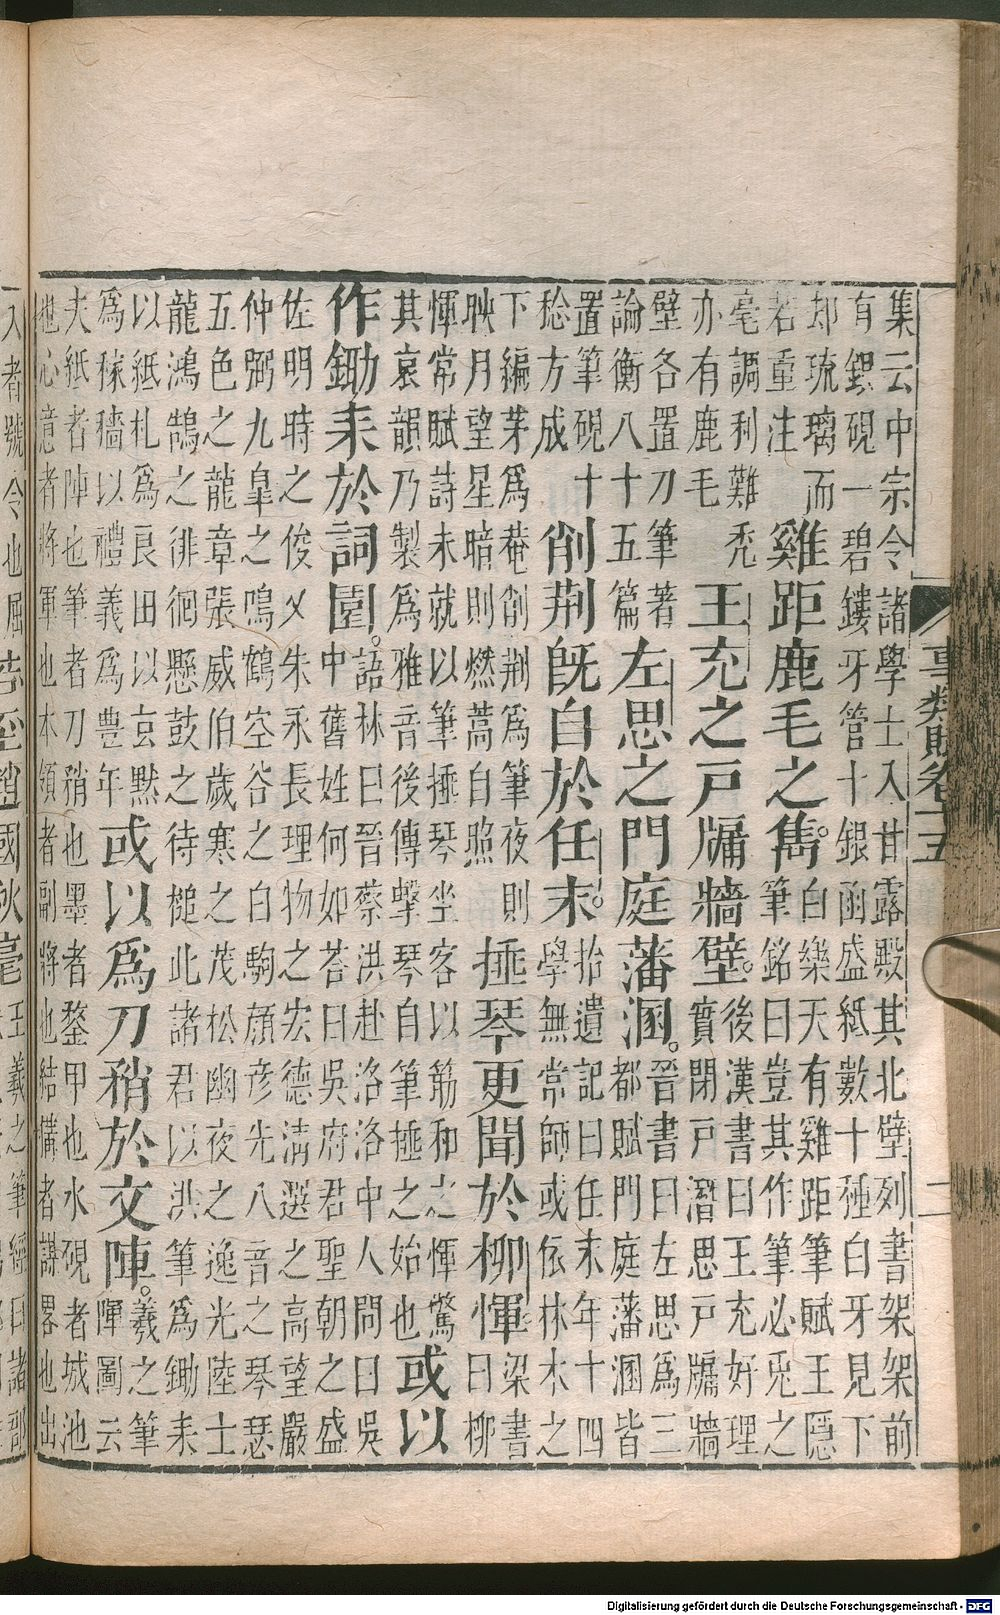 事類賦卷十五 二
集云中宗令諸學士入甘露殿其北壁列書架架前
有銀硯一碧鏤牙管十銀函盛紙數十種白牙見下
却琉璃而
若重注
雞距鹿毛之雋。
白樂天有雞距筆賦王隱
筆銘曰豈其作筆必兎之
毫調利難禿
亦有鹿毛
王充之戸牖牆壁。
後漢書曰王充好理
實閉戸潛思戸牖牆
壁各置刀筆著
論衡八十五篇
左思之門庭藩溷。
晉書曰左思爲三
都賦門庭藩溷皆
置筆硯十
稔方成
削荆旣自於任末。
拾遺記曰任末年十四
學無常師或依林木之
下編茅爲菴削荆爲筆夜則
映月望星暗則燃蒿自照
捶琴更聞於柳惲
梁書
曰柳
惲常賦詩未就以筆捶琴坐客以筋和之惲驚
其哀韻乃製爲雅音後傳擊琴自筆捶之始也
或以
作鋤耒於詞園。
語林曰晉蔡洪赴洛洛中人問曰吳
中舊姓何如荅曰吳府君聖朝之盛
佐明時之俊乂朱永長理物之宏德清選之高望嚴
仲弼九臯之鳴鶴空谷之白駒顔彦光八音之琴瑟
五色之龍章張威伯歲寒之茂松幽夜之逸光陸士
龍鴻鵠之徘徊懸鼓之待槌此諸君以洪筆爲鋤耒
以紙札爲良田以玄黙
爲稼穡以禮義爲豊年
或以爲刀矟於文陣。
羲之筆
陣圖云
夫紙者陣也筆者刀矟也墨者鍪甲也水硯者城池
也心意者將軍也本領者副將也結構者謀畧也出
入者號令也屈
趙國秋毫
王羲之筆經曰諸郡
Digitalisierung gefördert durch die Deutsche Forschungsgemeinschaft - DFG